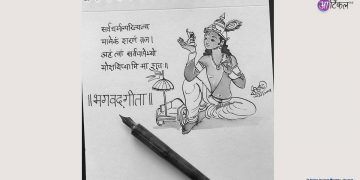 सर्वधर्मान्परित्यज्य
मामेकं शरणं व्रज।
अहं त्वा सर्वपापेभ्यो
मोक्षयिष्यामि मा शुच॥
॥भगवद्‌गीता॥
आर्टिकल